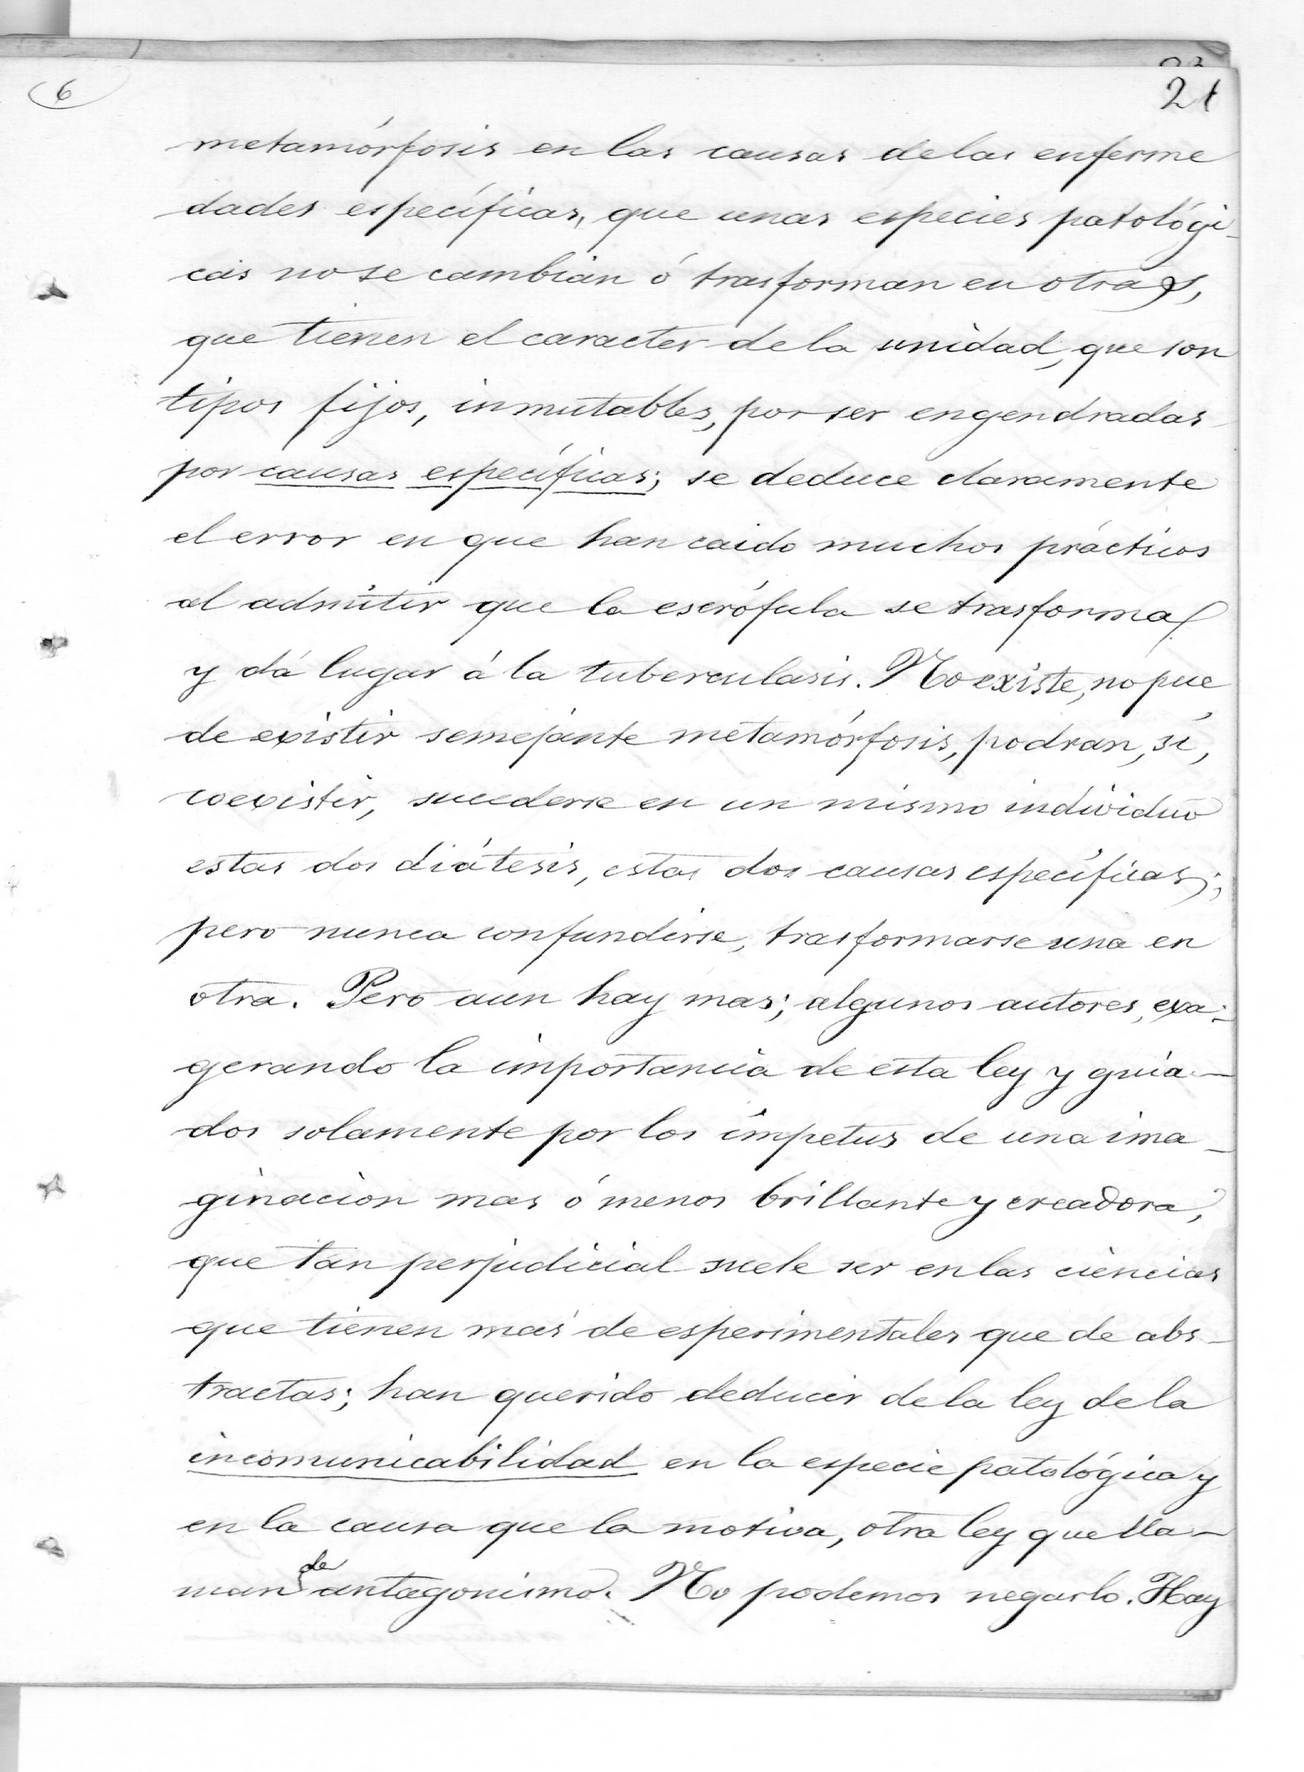 6
21
metamórfosis en las causas de las enferme
dades específicas, que unas especies patológi-
cas no se cambian ó trasforman en otras,
que tienen el caracter de la unidad, que son
tipos fijos, inmutables, por ser engendradas
por causas específicas; se deduce claramente
el error en que han caido muchos prácticos
al admitir que la escrófula se trasforma
y dá lugar á la tuberculasis. No existe, no pue
de existir semejante metamórfosis, podran, sí,
coexistir, sucederse en un mismo individuo
estas dos diátesis, estas dos causas específicas;
pero nunca confundirse, trasformarse una en
otra. Pero aun hay mas; algunos autores, exa-
gerando la importancia de esta ley y guia-
dos solamente por los ímpetus de una ima-
ginacion mas ó menos brillante y creadora,
que tan perjudicial suele ser en las ciencias
que tienen mas de esperimentales que de abs-
tractas; han querido deducir de la ley de la
incomunicabilidad en la especie patológica y
en la causa que la motiva, otra ley que lla-
man de antagonismo. No podemos negarlo. Hay